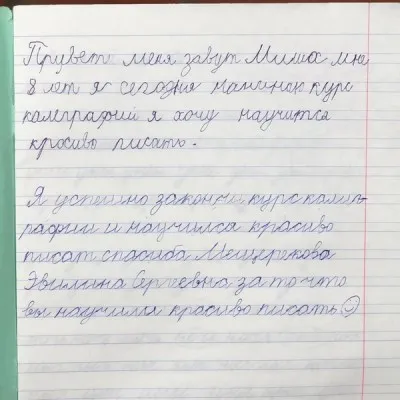 Прувет меня завут Миша мне
8 лет я сегодня начинаю курс
калеграфий я хочу научится
кросиво писать.
Я успешно закончи курс калиг-
рафии и научился красиво
писат спасиба Мещерекова
Эвилина Сергеевна за то что
вы научили красиво писать